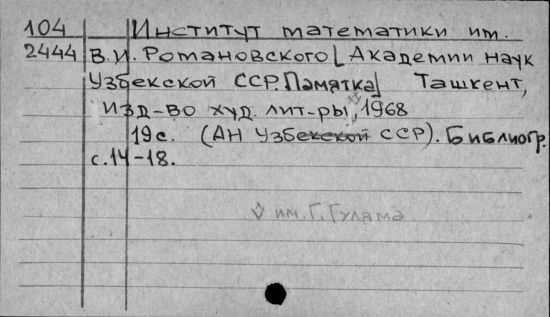 104 Институт математики им.
2444 В.И. Романовского [Академии наук
Узбекской ССР. Памятка] Ташкент,
изд-во худ. лит-ры, 1968
19с. (АН Узбекской ССР). Библиогр.
с.14-18.
V им. Г. Гуляма